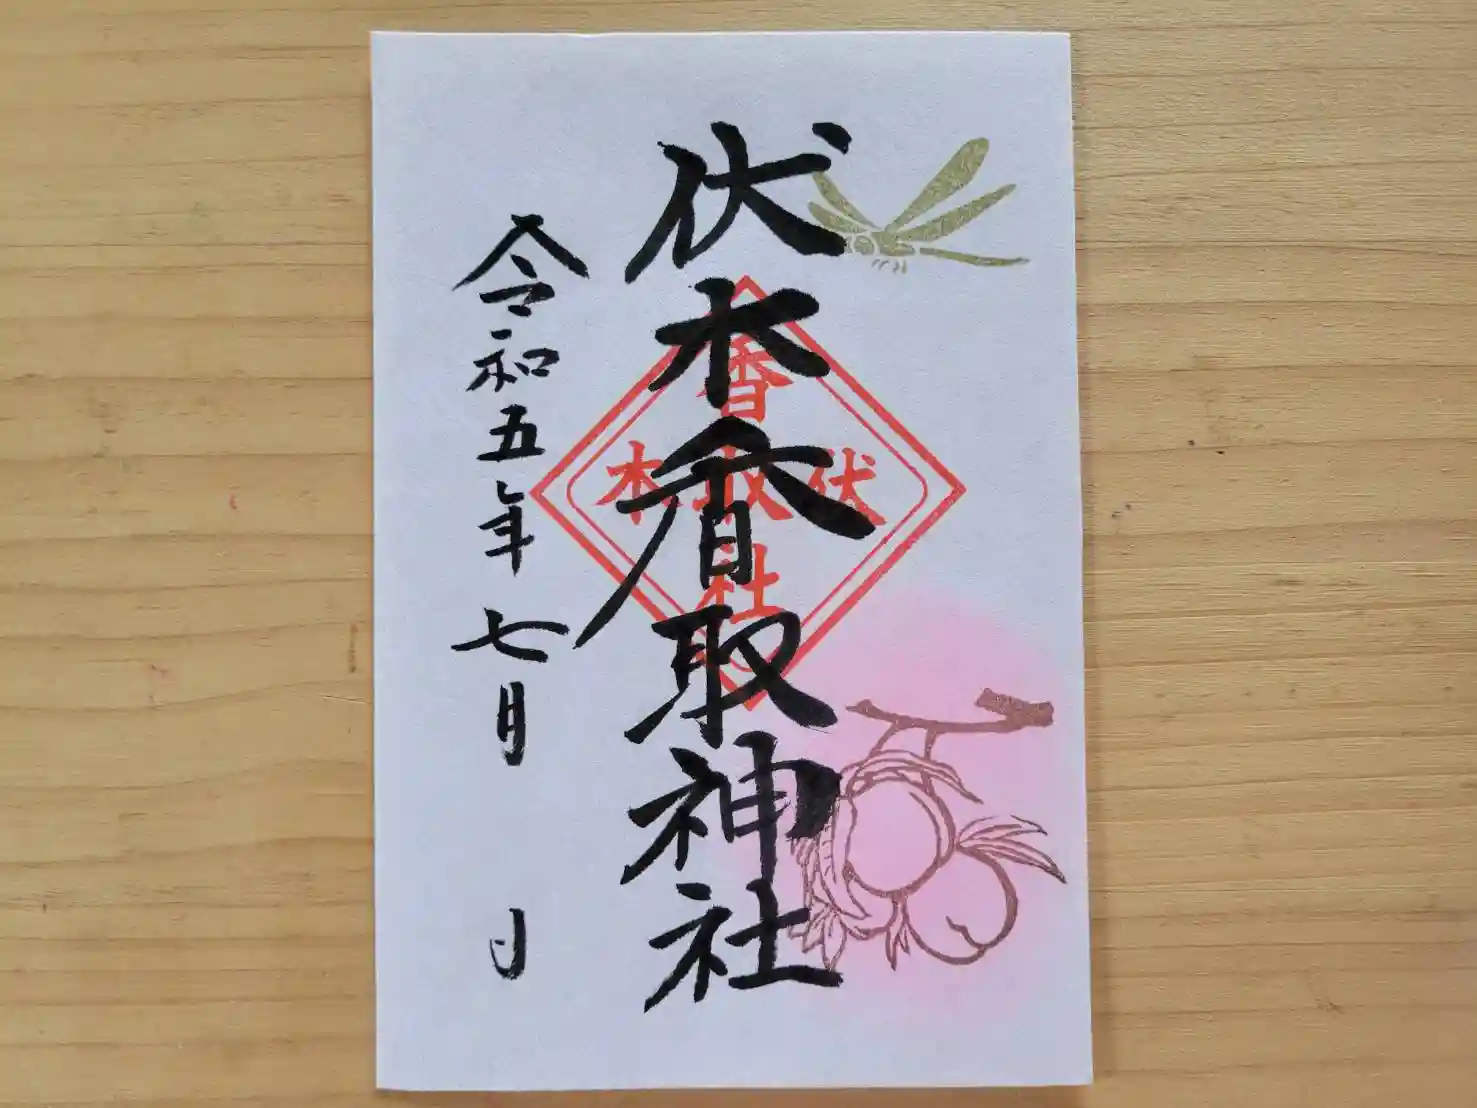 伏木香取神社
香
伏取木
社
令和五年七月 日